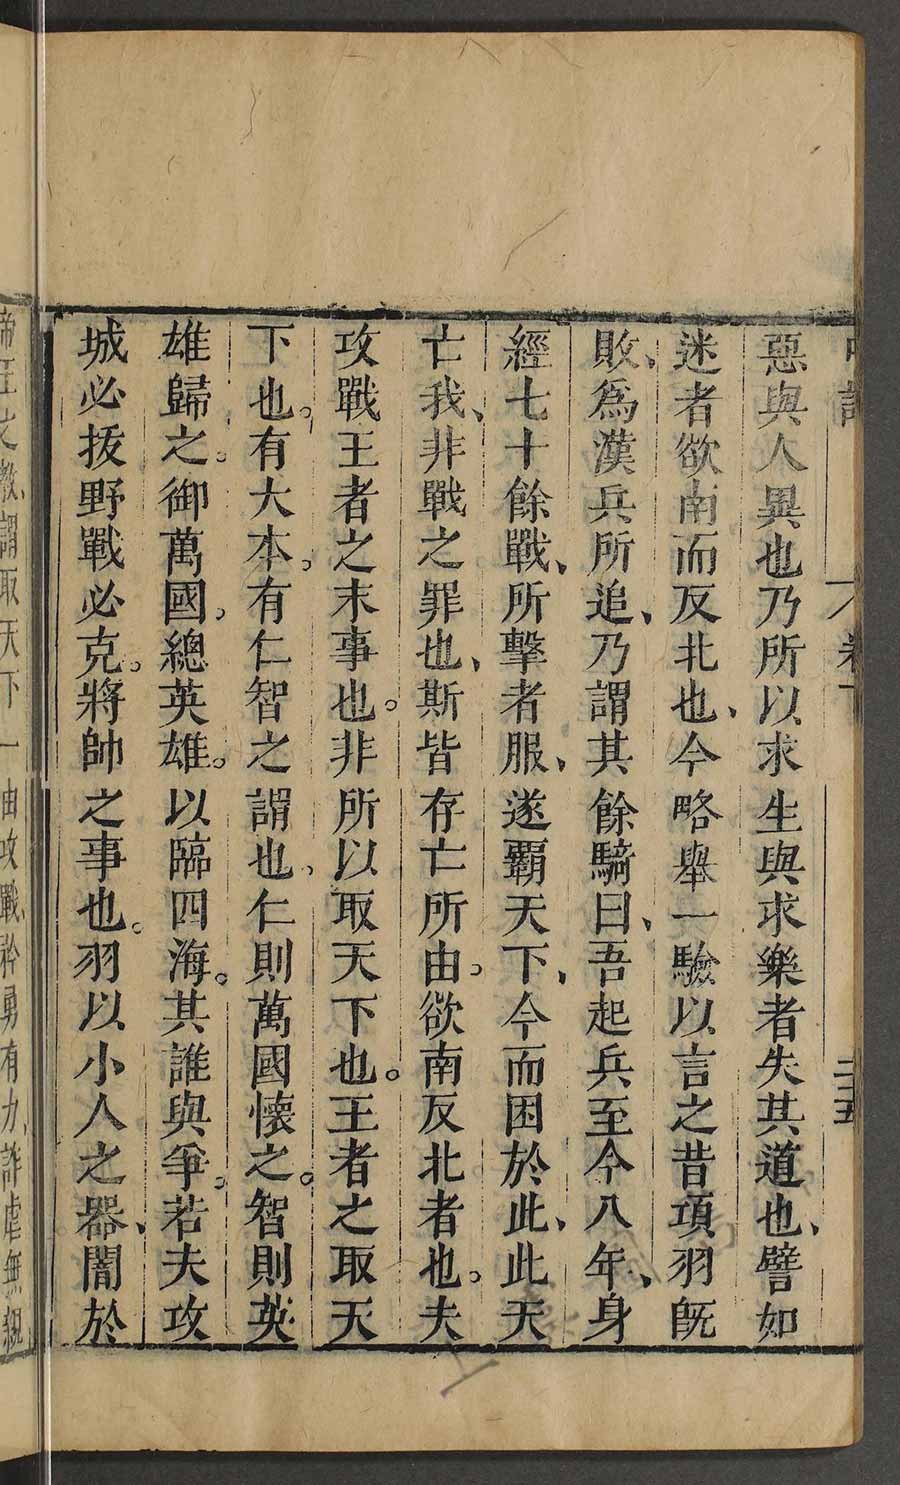 卷下
二十五
惡與人異也乃所以求生與求樂者失其道也、譬如
迷者欲南而反北也、今略舉一驗以言之昔項羽旣
敗、爲漢兵所追、乃謂其餘騎曰、吾起兵至今八年、身
經七十餘戰、所擊者服、遂霸天下、今而困於此、此天
亡我、非戰之罪也、斯皆存亡所由。欲南反北者也。夫
攻戰王者之末事也。非所以取天下也。王者之取天
下也。有大本。有仁智之謂也、仁則萬國懷之。智則英
雄歸之。御萬國。總英雄。以臨四海。其誰與爭。若夫攻
城必拔野戰必克。將帥之事也。羽以小人之器、闇於
帝王之教、謂取天下一由攻戰、矜勇有力、詐虐無親